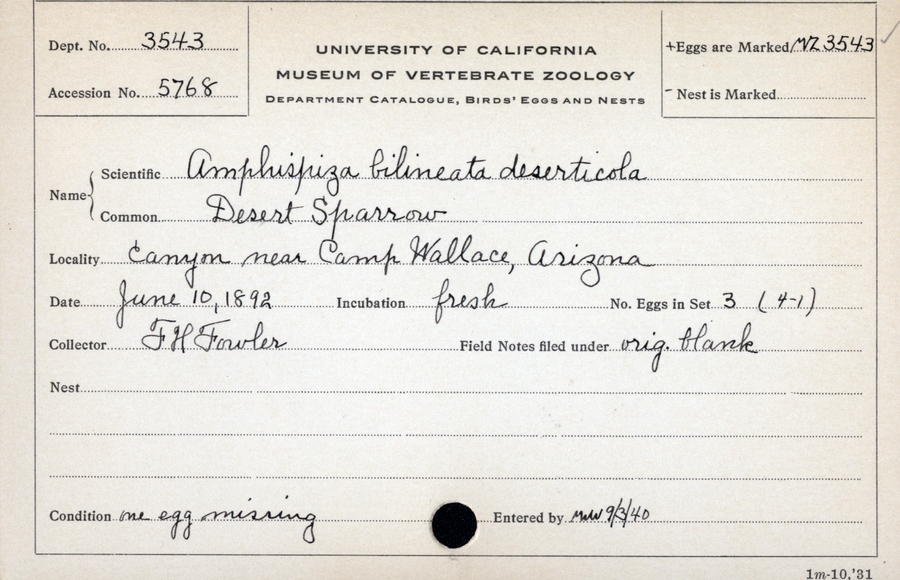 Dept. No. 3543
Accession No. 5768
UNIVERSITY OF CALIFORNIA
MUSEUM OF VERTEBRATE ZOOLOGY
DEPARTMENT CATALOGUE, BIRDS' EGGS AND NESTS
+Eggs are Marked MVZ 3543 ✓
- Nest is Marked
Name { Scientific Amphispiza bilineata deserticola
Common Desert Sparrow
Locality Canyon near Camp Wallace, Arizona
Date June 10, 1892 Incubation fresh No. Eggs in Set 3 (4-1)
Collector F H Fowler Field Notes filed under orig. blank
Nest
Condition one egg missing Entered by MWW 9/3/40
1m-10,'31